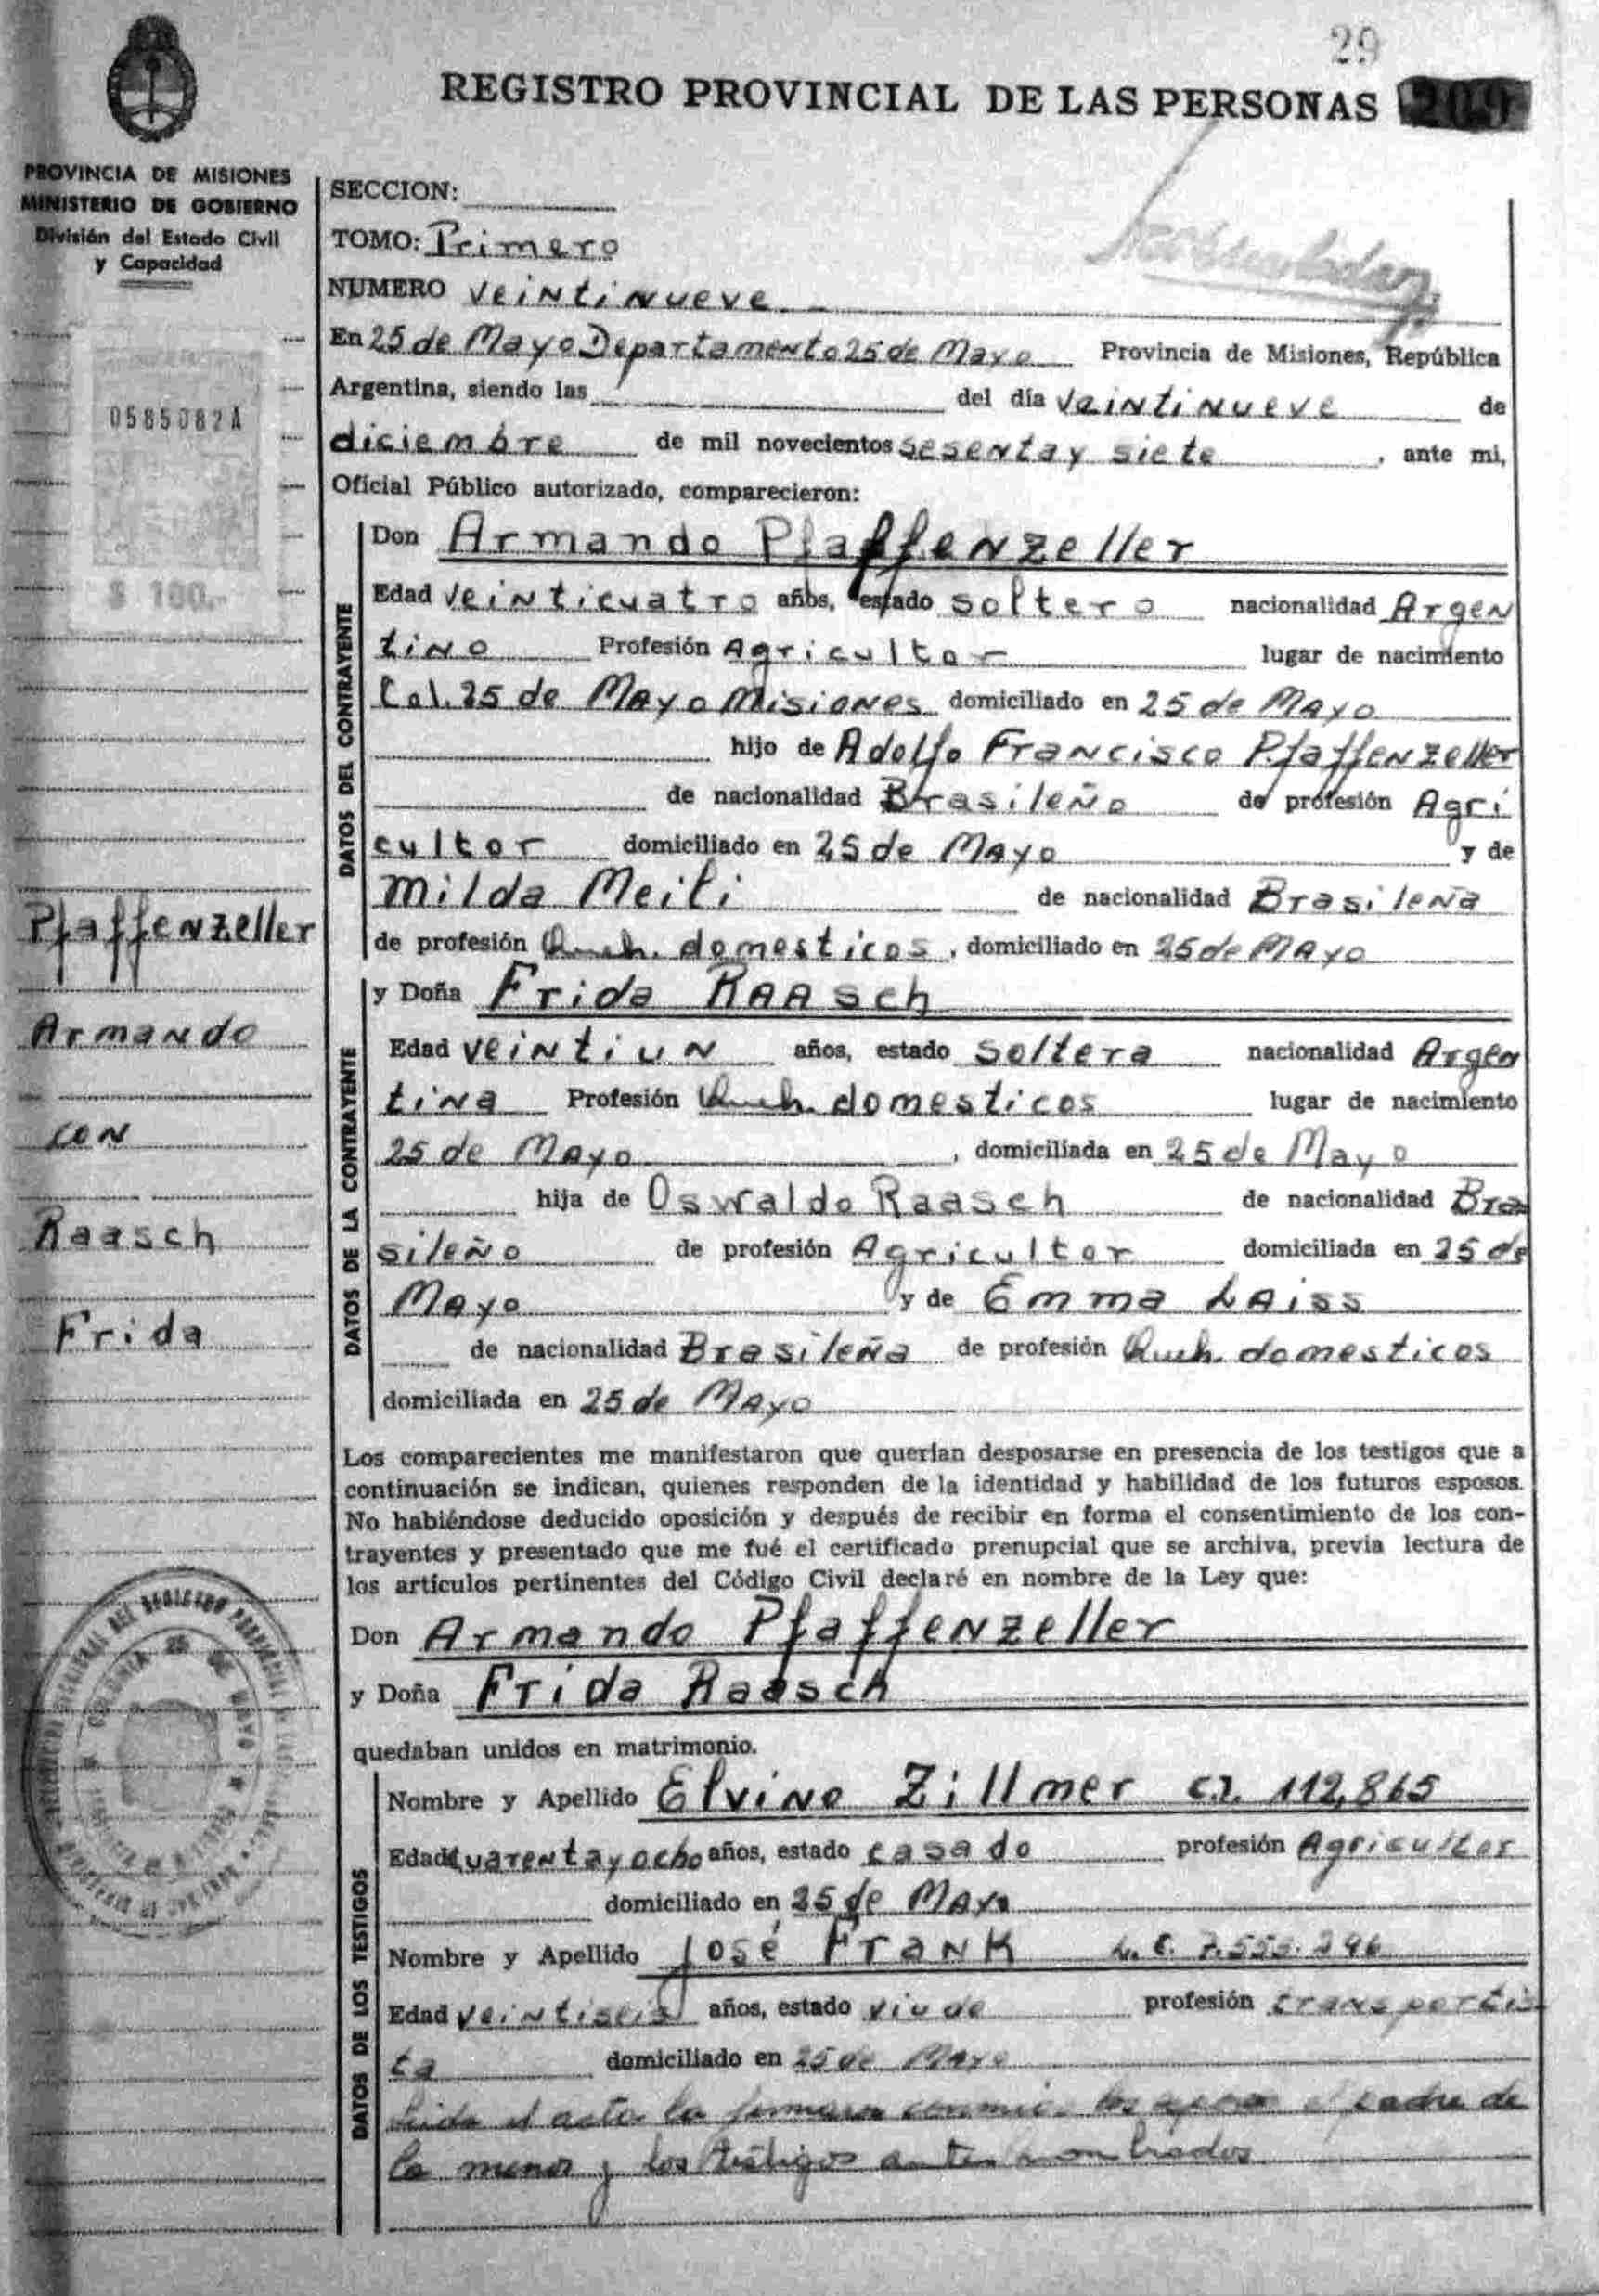 29
REGISTRO PROVINCIAL DE LAS PERSONAS 209
PROVINCIA DE MISIONES
MINISTERIO DE GOBIERNO
División del Estado Civil
y Capacidad
0585082A
$ 100.-
SECCION:
TOMO: Primero
NUMERO veintinueve
En 25 de Mayo Departamento 25 de Mayo Provincia de Misiones, República
Argentina, siendo las del día veintinueve de
diciembre de mil novecientos sesenta y siete, ante mi,
Oficial Público autorizado, comparecieron:
DATOS DEL CONTRAYENTE
Don Armando Pfaffenzeller
Edad veinticuatro años, estado soltero nacionalidad Argen
tino Profesión Agricultor lugar de nacimiento
Col. 25 de Mayo Misiones domiciliado en 25 de Mayo
hijo de Adolfo Francisco Pfaffenzeller
de nacionalidad Brasileño de profesión Agri
cultor domiciliado en 25 de Mayo y de
Milda Meili de nacionalidad Brasileña
de profesión Queh. domesticos, domiciliado en 25 de Mayo
DATOS DE LA CONTRAYENTE
y Doña Frida Raasch
Edad veintiun años, estado soltera nacionalidad Argen
tina Profesión Queh. domesticos lugar de nacimiento
25 de Mayo, domiciliada en 25 de Mayo
hija de Oswaldo Raasch de nacionalidad Bra
sileño de profesión Agricultor domiciliada en 25 de
Mayo y de Emma Laiss
de nacionalidad Brasileña de profesión Queh. domesticos
domiciliada en 25 de Mayo
Pfaffenzeller
Armando
con
Raasch
Frida
Los comparecientes me manifestaron que querían desposarse en presencia de los testigos que a
continuación se indican, quienes responden de la identidad y habilidad de los futuros esposos.
No habiéndose deducido oposición y después de recibir en forma el consentimiento de los con-
trayentes y presentado que me fué el certificado prenupcial que se archiva, previa lectura de
los artículos pertinentes del Código Civil declaré en nombre de la Ley que:
Don Armando Pfaffenzeller
y Doña Frida Raasch
quedaban unidos en matrimonio.
COLONIA 25 DE MAYO
DATOS DE LOS TESTIGOS
Nombre y Apellido Elvino Zillmer C.I. 112,865
Edad Cuarenta y ocho años, estado casado profesión Agricultor
domiciliado en 25 de Mayo
Nombre y Apellido José Frank
Edad veintiseis años, estado viudo profesión transportis
ta domiciliado en 25 de Mayo
Leida el acta la firmaron conmigo los el padre de
la menor y los testigos antes nombrados